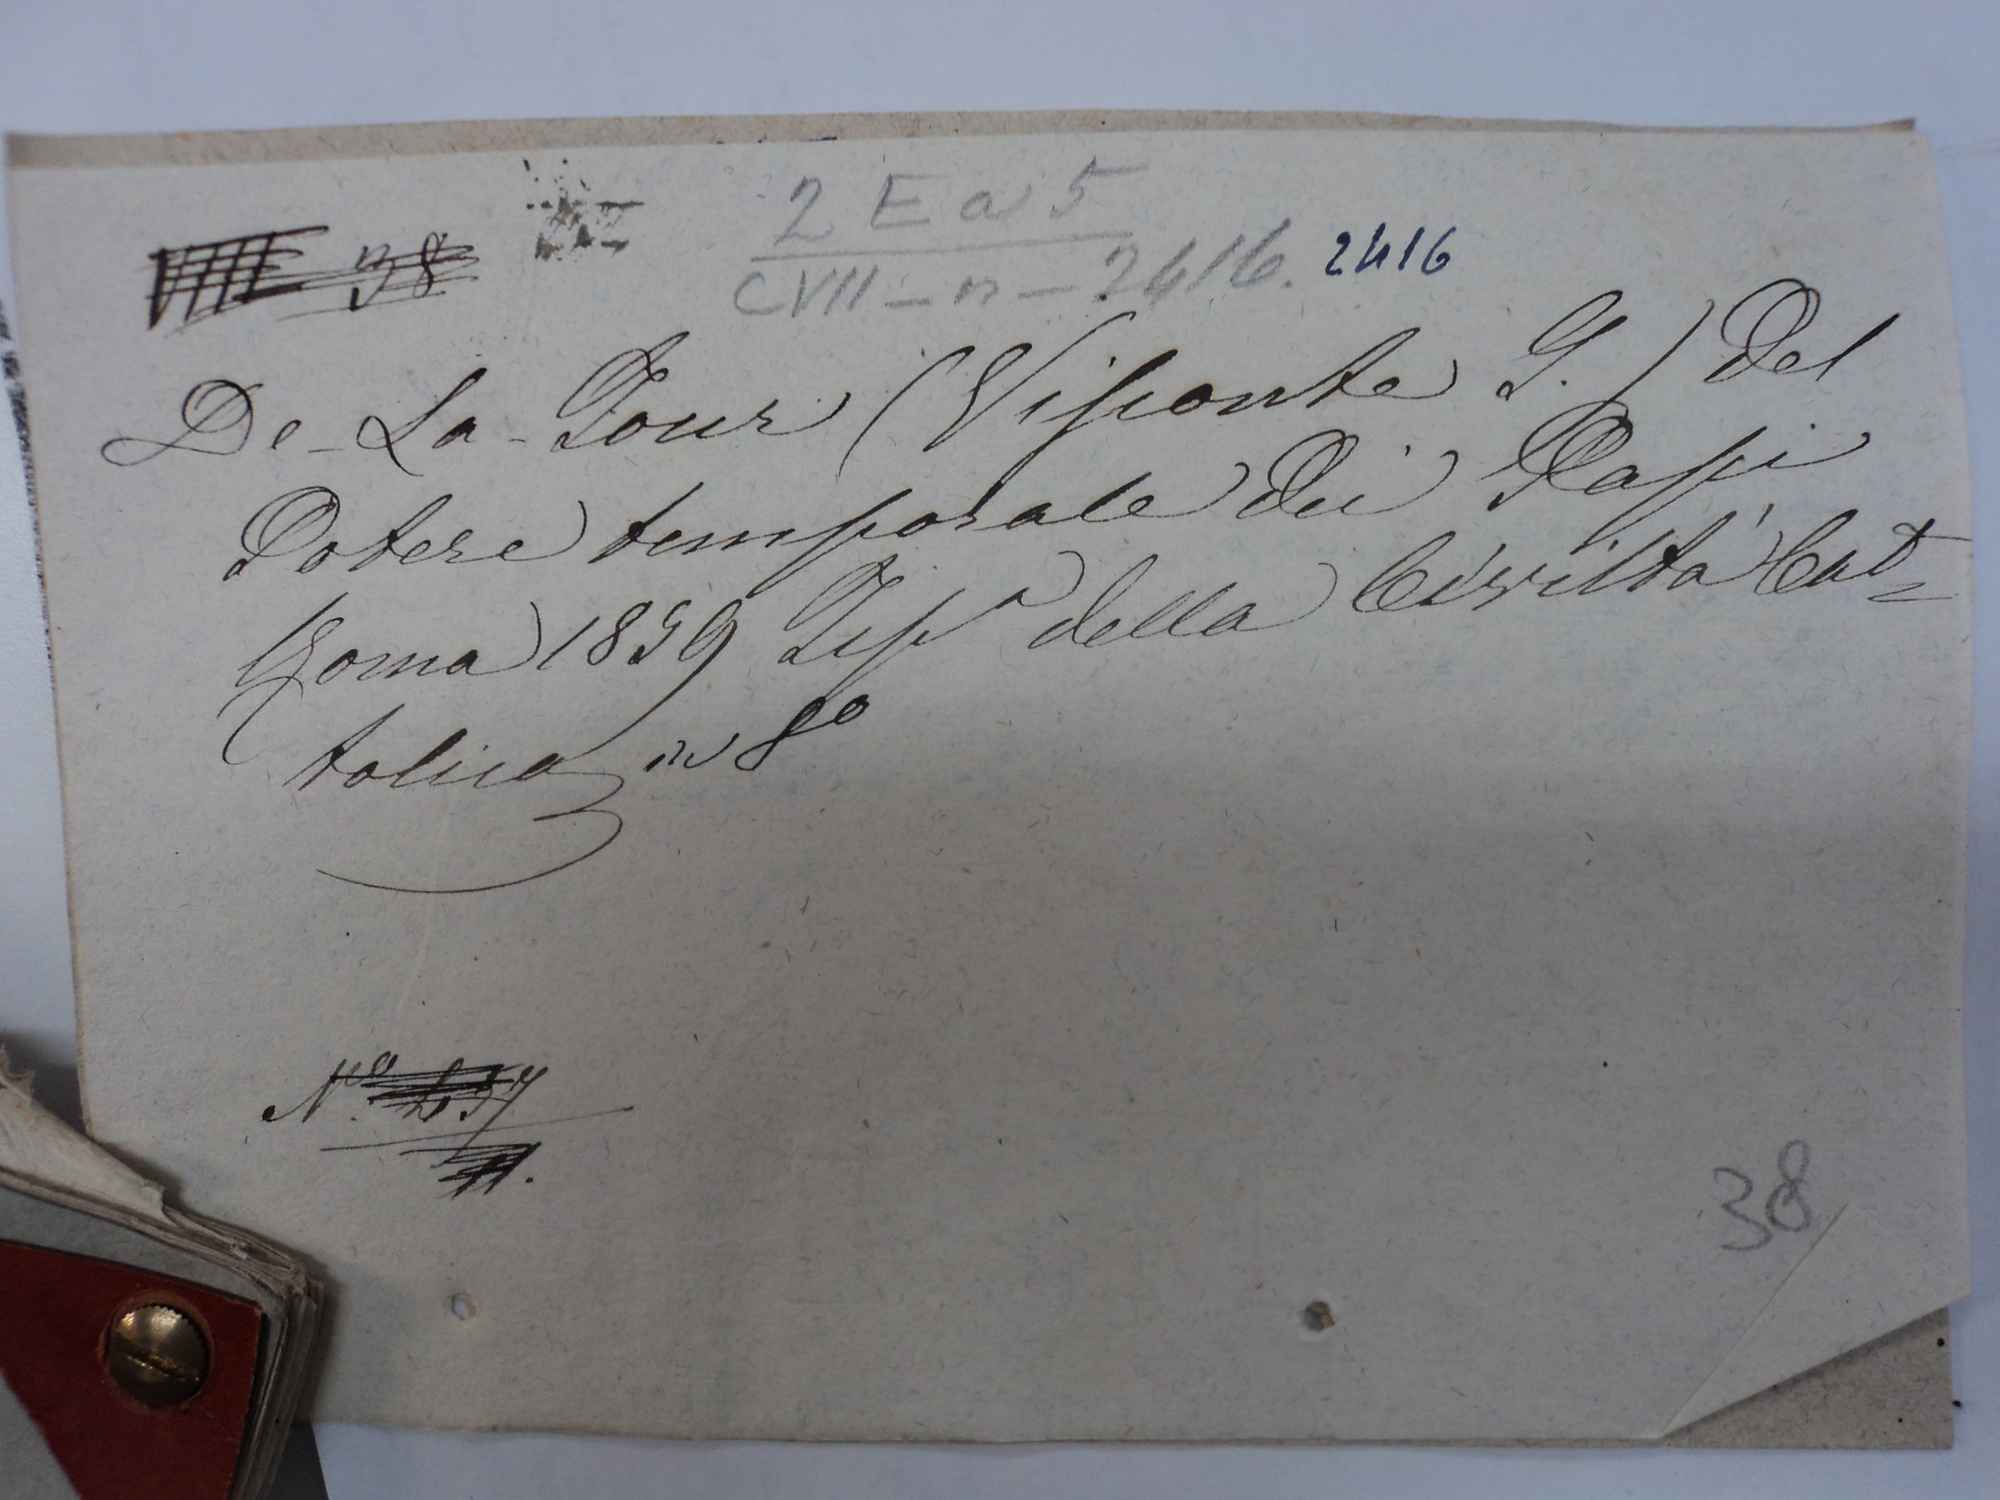 VIII E 38
2 E a 5
CVII - n - 2416. 2416
De-La-Tour (Visconte G.) Del
Potere temporale Dei Papi
Roma 1859 Tip.ª della Civiltà Cat=
tolica in 8º
Nº
38